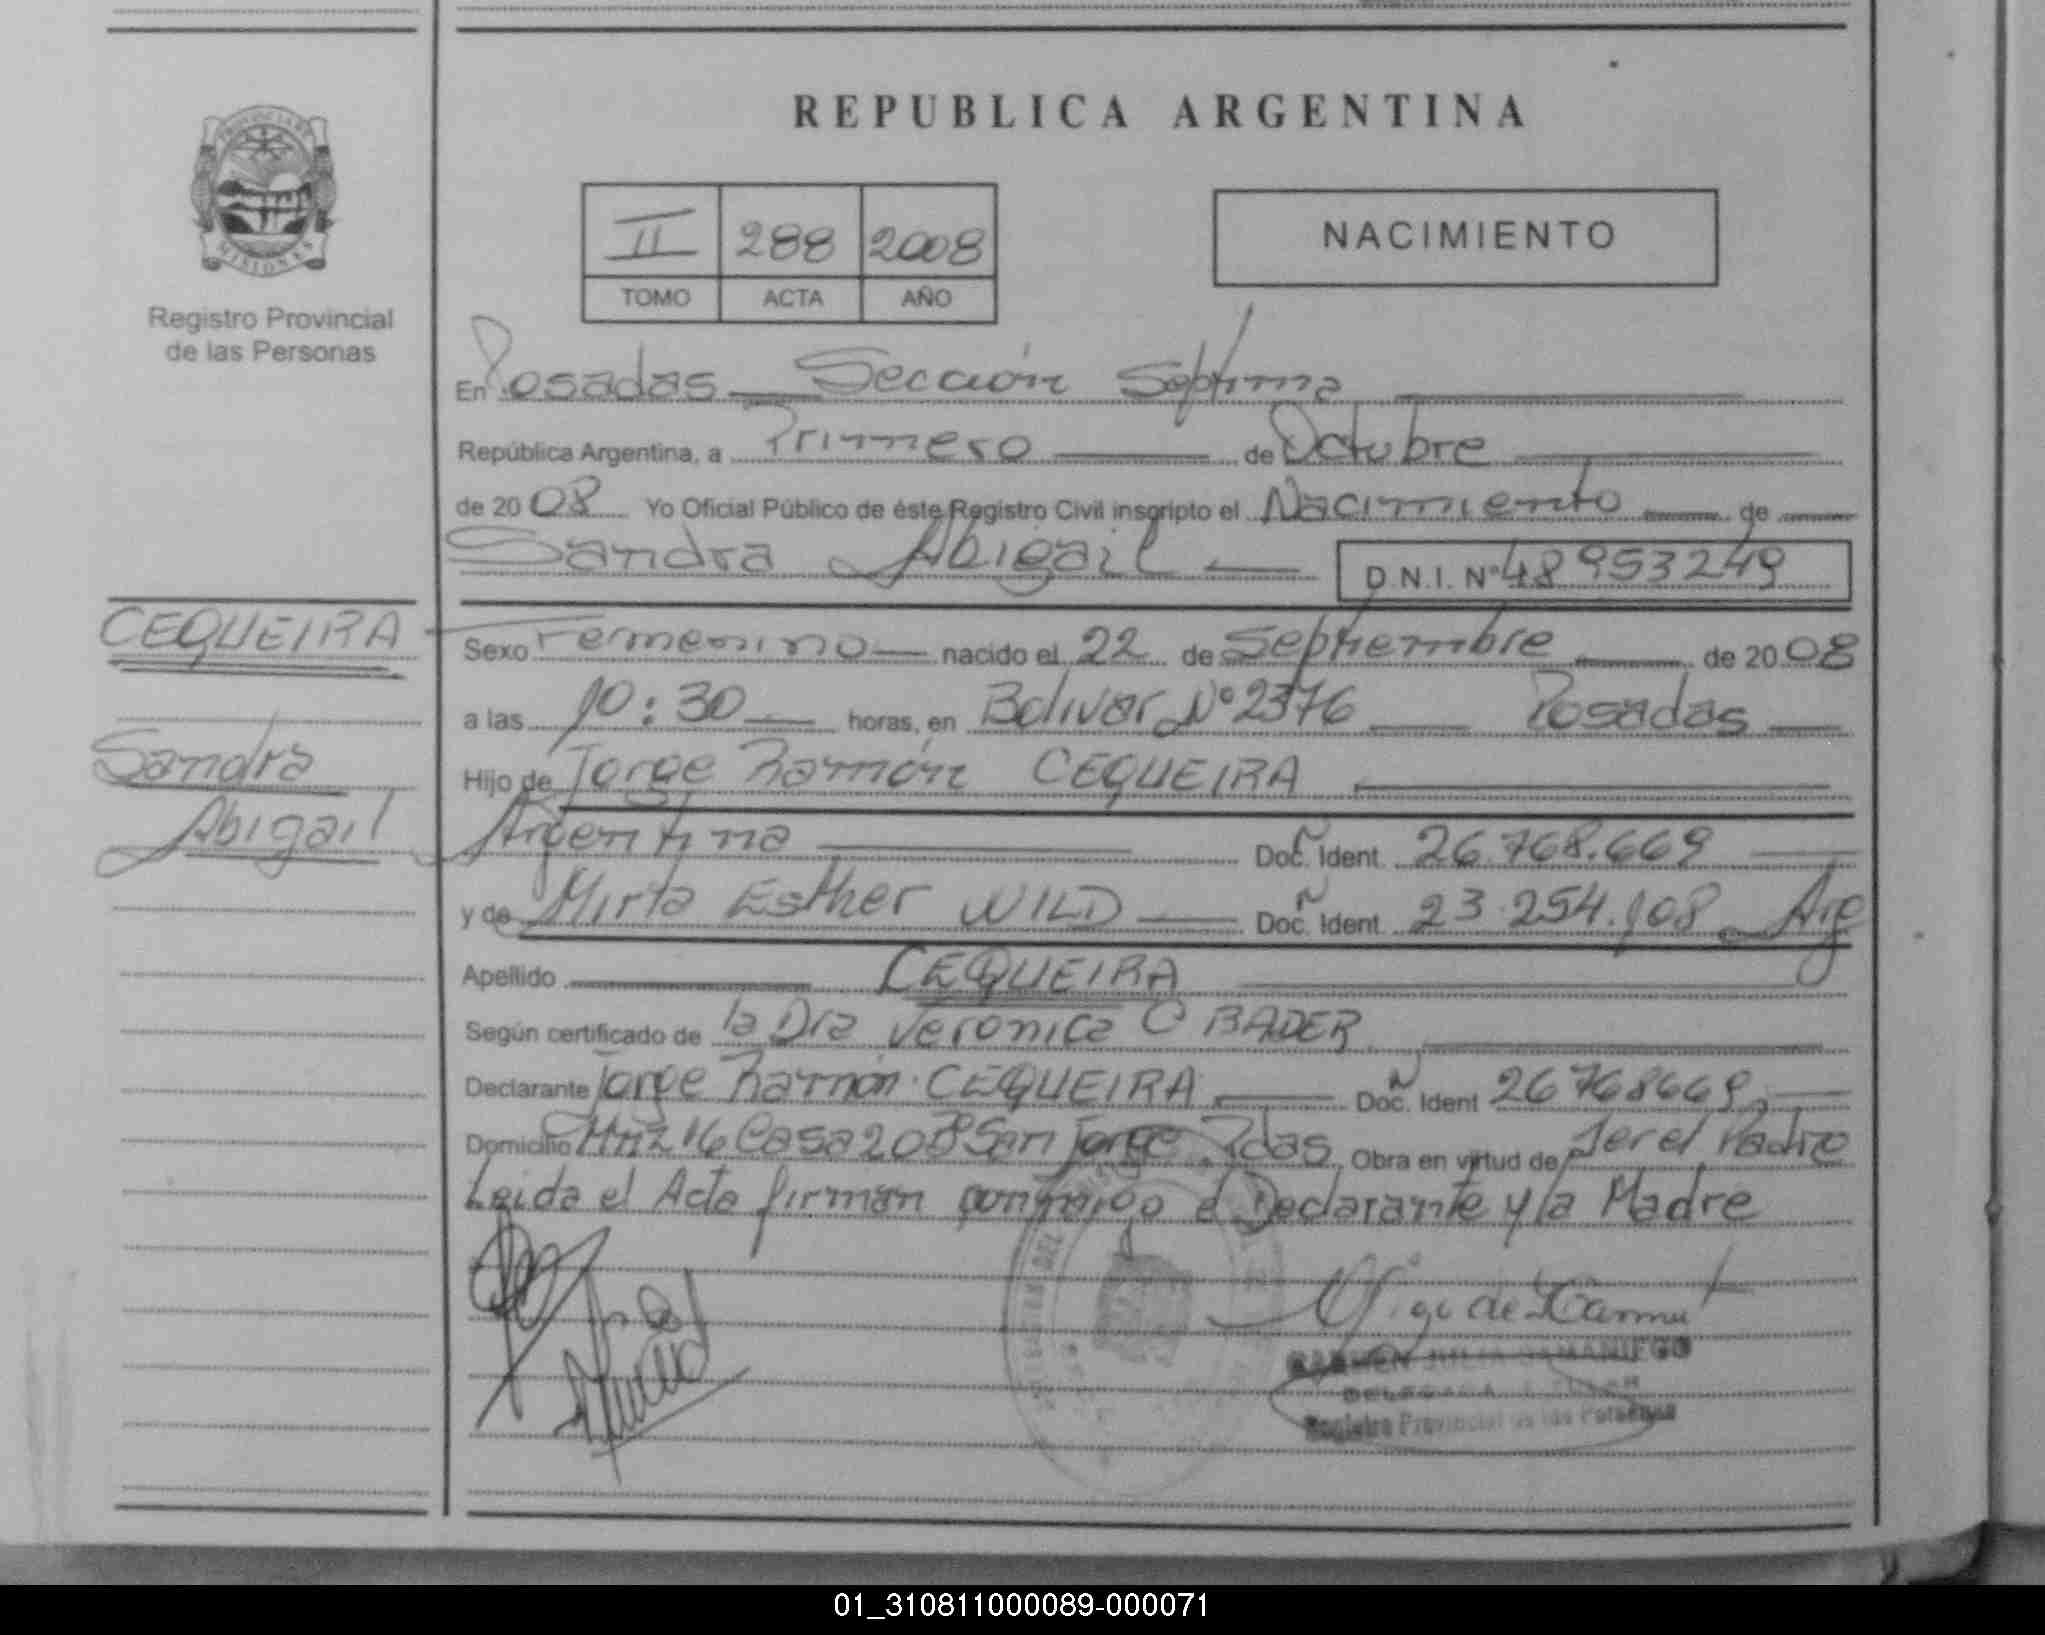 REPUBLICA ARGENTINA
PROVINCIA DE
MISIONES
Registro Provincial
de las Personas
II 288 2008
TOMO ACTA AÑO
NACIMIENTO
En Posadas Sección Septima
República Argentina, a Primero de Octubre
de 2008 Yo Oficial Público de éste Registro Civil inscripto el Nacimiento de
Sandra Abigail D.N.I. Nº 48953249
CEQUEIRA
Sandra
Abigail
Sexo Femenino nacido el 22 de Septiembre de 2008
a las 10:30 horas, en Bolivar Nº 2376 Posadas
Hijo de Jorge Ramón CEQUEIRA
Argentina Doc. Ident. 26.768.669
y de Mirta Esther WILD Doc. Ident. 23.254.108 Arg
Apellido CEQUEIRA
Según certificado de la Dra Veronica C BADER
Declarante Jorge Ramón CEQUEIRA Doc. Ident 26768669
Domicilio Mnz 16 Casa 20 Bº San Jorge Pdas Obra en virtud de Ser el Padre
Leida el Acta firman conmigo el Declarante y la Madre
CARMEN JULIA SAMANIEGO
Registro Provincial de las Personas
01_310811000089-000071